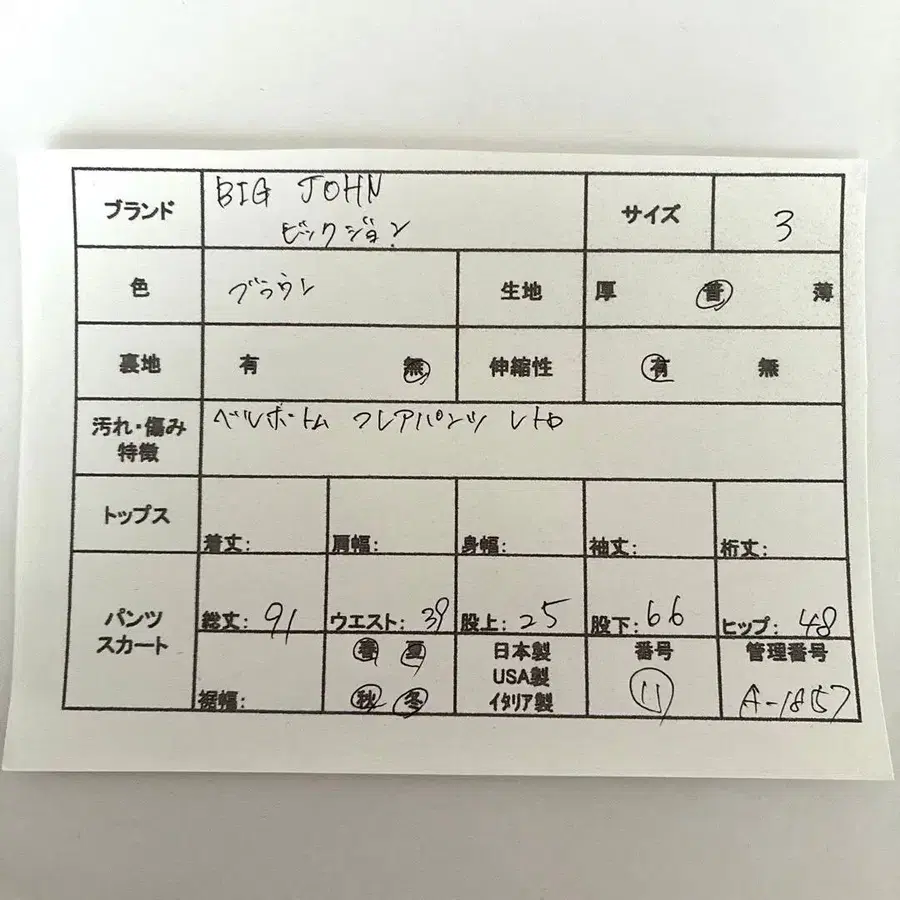 ブランド BIG JOHN サイズ 3
ビックジョン
色 ブラウン 生地 厚 普 薄
裏地 有 無 伸縮性 有 無
汚れ・傷み ベルボトム フレアパンツ レトロ
特徴
トップス
着丈: 肩幅: 身幅: 袖丈: 桁丈:
パンツ
スカート
総丈: 91 ウエスト: 39 股上: 25 股下: 66 ヒップ: 48
春 夏 日本製 番号 管理番号
USA製
裾幅: 秋 冬 イタリア製 11 A-1857